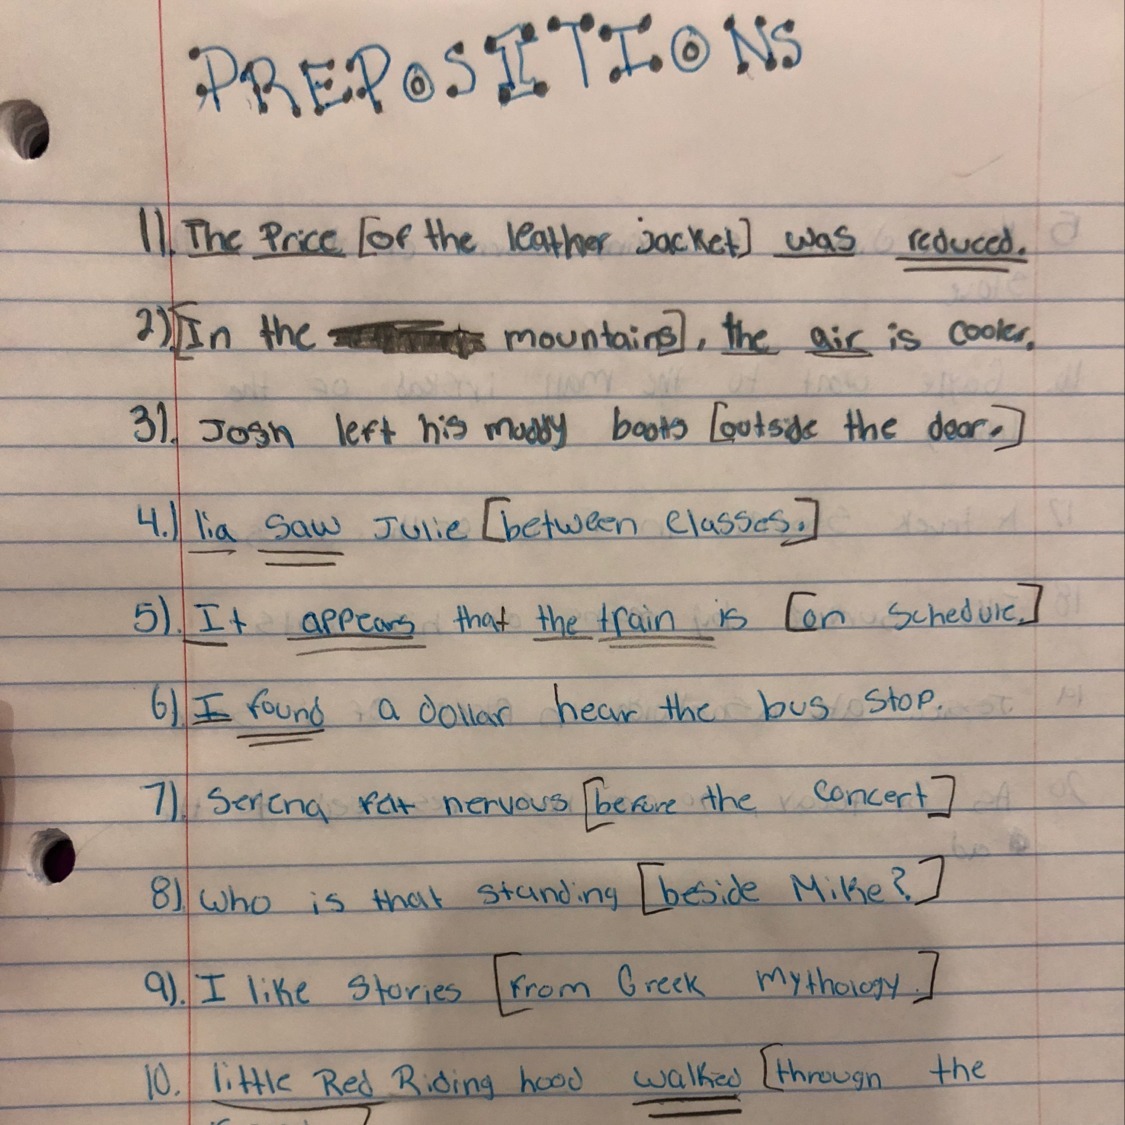 PREPOSITIONS
1). The Price [of the leather jacket] was reduced.
2) [In the mountains], the air is cooler.
3). Josh left his muddy boots [outside the door.]
4.) lia saw Julie [between classes.]
5). It appears that the train is [on schedule.]
6) I found a dollar near the bus stop.
7). Serena felt nervous [before the concert]
8) Who is that standing [beside Mike?]
9). I like stories [from Greek mythology.]
10. little Red Riding hood walked [through the